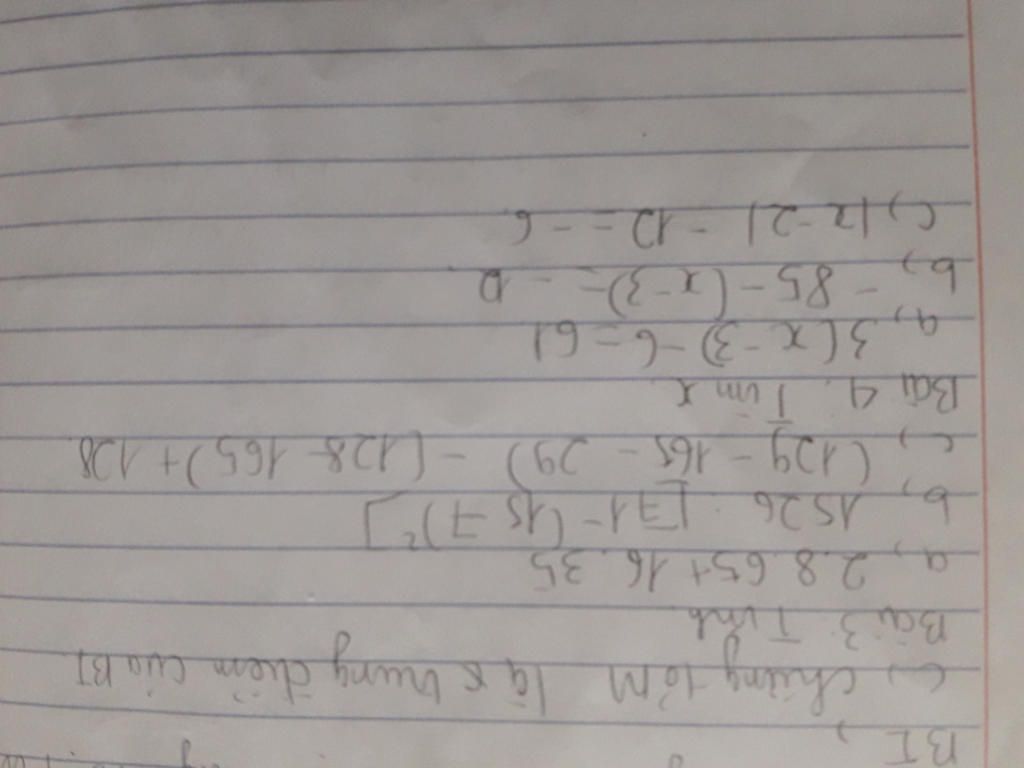 BI,
c, chứng tỏ M là trung điểm của BI
Bài 3. Tính
a, 2.8.65+ 16.35
b, 1526 : [71-(15-7)²]
c, (129 - 165 - 29) - (128-165)+128
Bài 4. Tìm x
a, 3(x-3)-6=61
b, - 85-(x-3)=-12
c, |x-2| - 12=-6